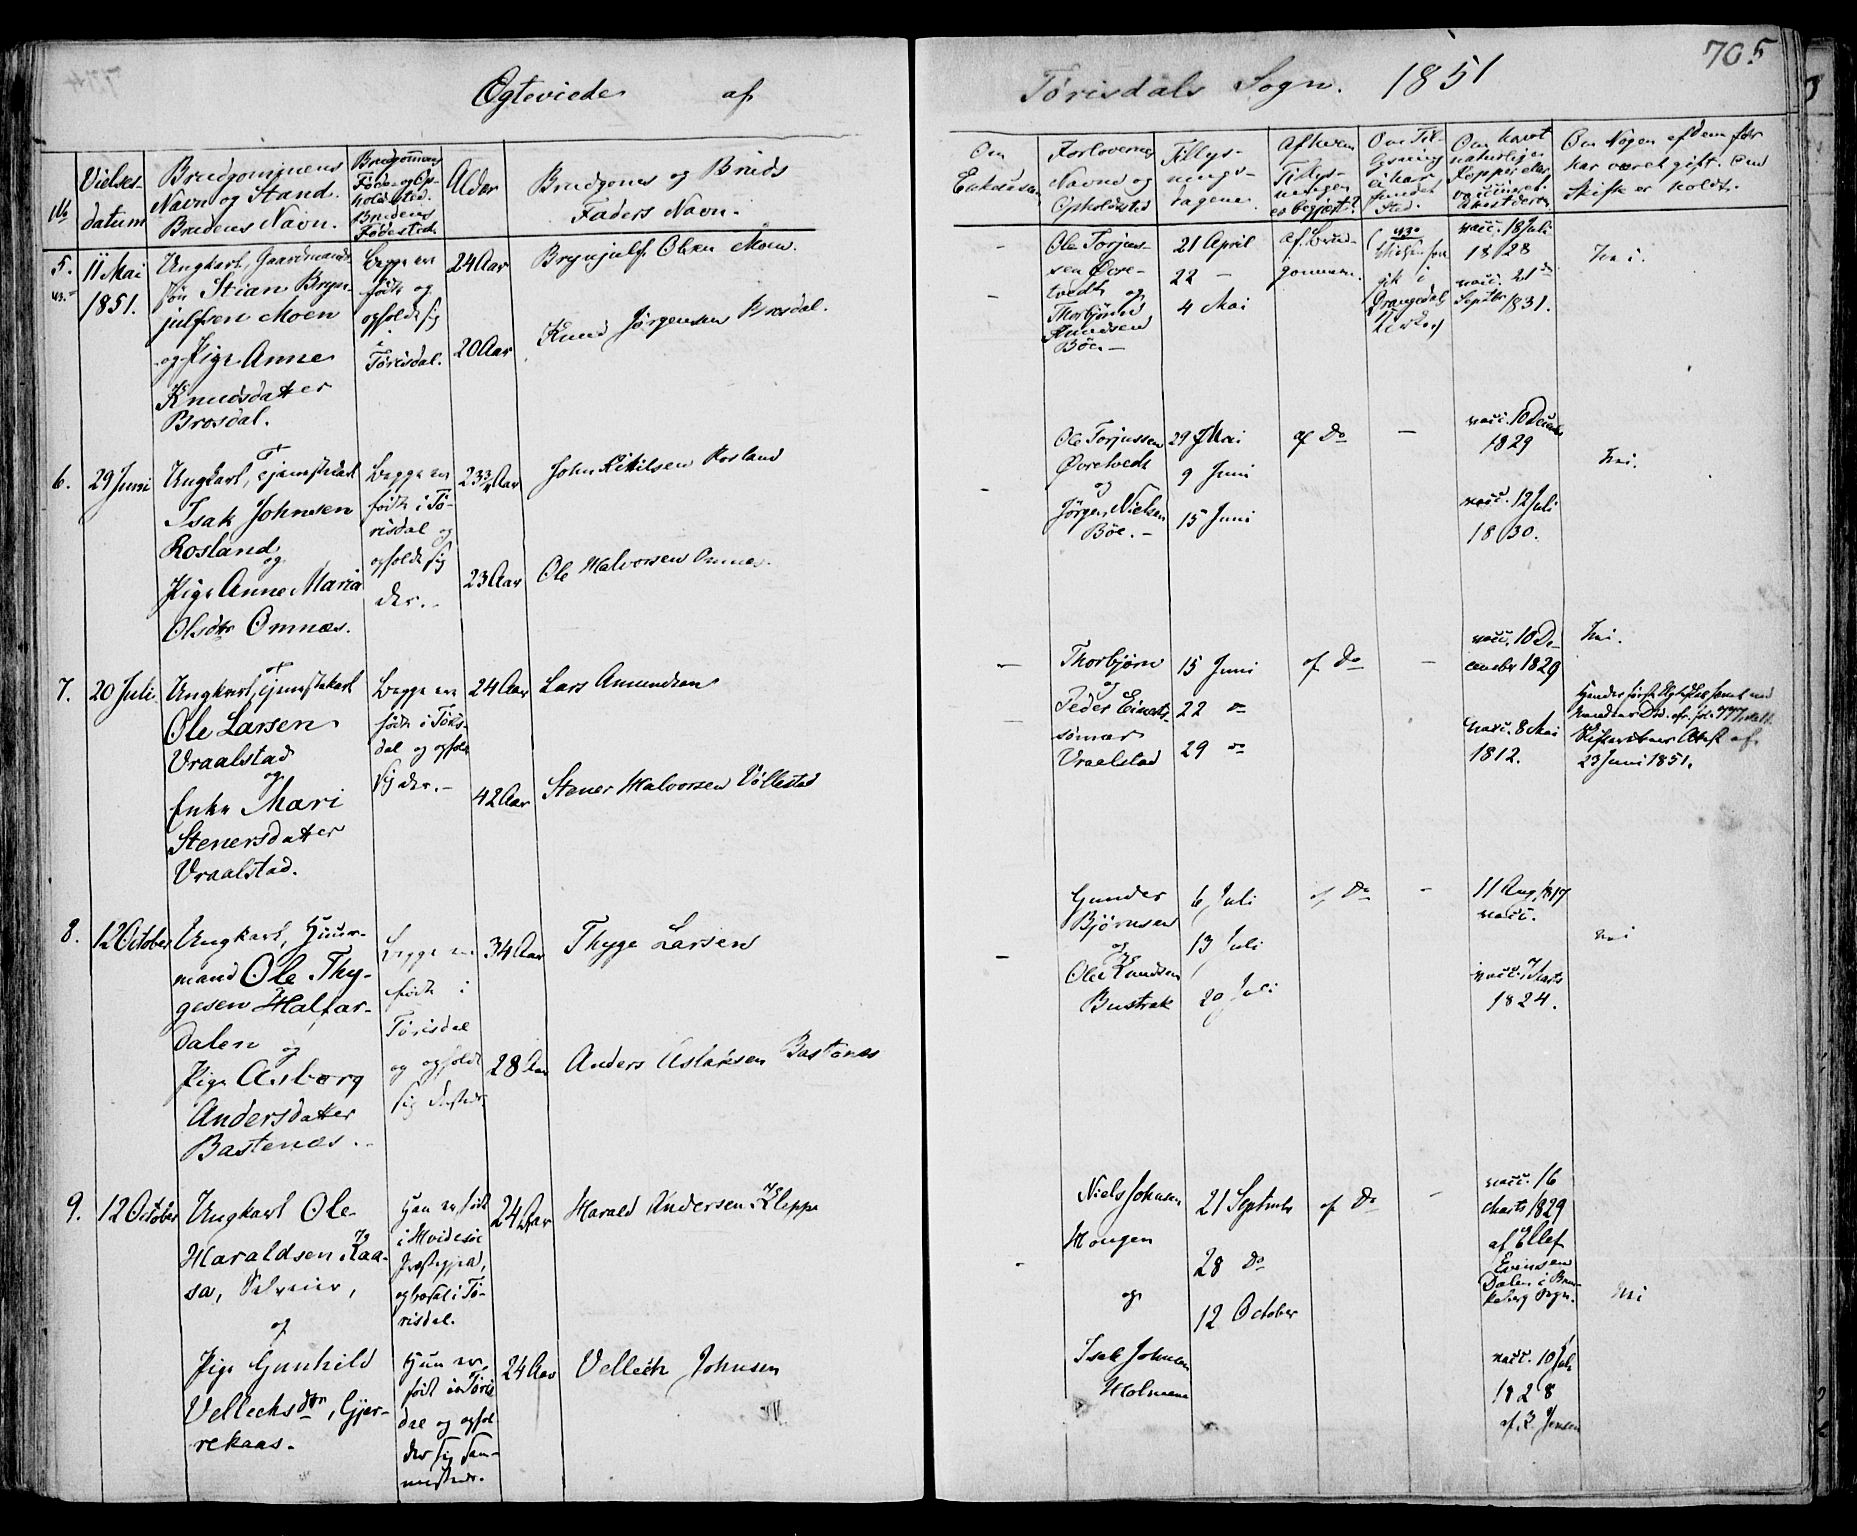 Ægteviede af
Tørisdals Sogn. 1851
705
No
Vielses-
datum
Brudgommens
Navn og Stand.
Brudens Navn.
Brudgommens
Føde- og Op-
holdssted.
Brudens
Fødested.
Alder
Brudgoms og Bruds
Faders Navn.
Om
Enkestand
Forlovernes
Navne og
Opholdssted
Tillys-
nings-
dagene.
Af hvem
Tillys-
ningen
er begjært.
Om Til-
lysning
ei har
fundet
Sted.
Om havt
naturlige
Kopper eller
vaccineret.
Om Nogen af dem før
har været gift. Om
Skifte er holdt.
5.
11 Mai
1851.
Ungkarl, Gaardmands
søn Stian Bryn-
julfsen Moen
og Pige Anne
Knudsdatter
Brosdal.
Begge ere
fødte og
opholde sig
i
Tørisdal.
24 Aar
20 Aar
Brynjulf Olsen Moen.
Knud Jørgensen Brosdal.
Ole Torjus-
sen Øvre-
tvedt og
Thorbjørn
Knudsen
Böe. –
21 April
22 –
4 Mai
af Brud-
gommen.
Drangedals
Kirke)
vacc. 18 Juli
1828
vacc. 21de
Septbr 1831.
Nei.
6.
29 Juni
Ungkarl, Tjenestekarl
Isak Johnsen
Rosland
og
Pige Anne Maria
Olsdtr Omnæs.
Begge ere
født i Tø-
risdal og
opholde sig
der. –
23 Aar
John Kittilsen Rosland
Ole Halvorsen Omnæs.
Ole Torjussen
Øvretvedt
og
Jørgen Nielsen
Böe. –
29 Mai
9 Juni
15 Juni
af Do
–
vacc. 10 Decembr
1829
vacc. 12 Juli
1830.
Nei.
7.
20 Juli
Ungkarl, Tjenestekarl
Ole Larsen
Vraalstad
og
Enke Mari
Stenersdatter
Vraalstad.
Begge ere
født i Töris-
dal og ophold
sig der. –
24 Aar
42 Aar
Lars Amundsen
Stener Halvorsen Völlestad
–
Thorbjørn
og
Peder Einerts-
sønner
Vraalstad
15 Juni
22 do
29 do
af Do
–
vacc. 10 De-
cember 1829
vacc. 8 Mai
1812.
Nei.
23 Juni 1851.
8.
12 October
Ungkarl, Huus-
mand Ole Thy-
gesen Halfar-
dalen
og
Pige Asborg
Andersdatter
Bastenæs. –
Begge ere
født i
Tørisdal
og opholde
sig dersteds.
34 Aar
28 Aar
Thyge Larsen
Anders Aslaksen Bastenæs
–
Gunder
Bjørnsen
og
Ole Knudsen
Bustrak
6 Juli
13 Juli
20 Juli
af Do
–
11 Aug. 1817
vacc.
vacc. 7 Marts
1824.
nei
9.
12 October
Ungkarl Ole
Haraldsen Kaa-
sa, Selveier,
og
Pige Gunhild
Vellechsdtr, Gjer-
rekaas.
Han er født
i Hvidesøe
Præstegjeld,
og bosat i Tø-
risdal.
Hun er
født i Töris
dal og ophol
der sig sam-
mesteds.
24 Aar
24 Aar
Harald Andersen Kleppe
Vellech Johnsen
Niels Johnsen
Hougen
og
Isak Johnsen
Holmene
21 Septembr
28 Do
12 October
af Do
–
vacc. 16
Marts 1829
af Ellef
Evensen
Dalen i Brun-
keberg Sogn.
vacc. 10 Juli
1828
af Z. Jensen
Nei